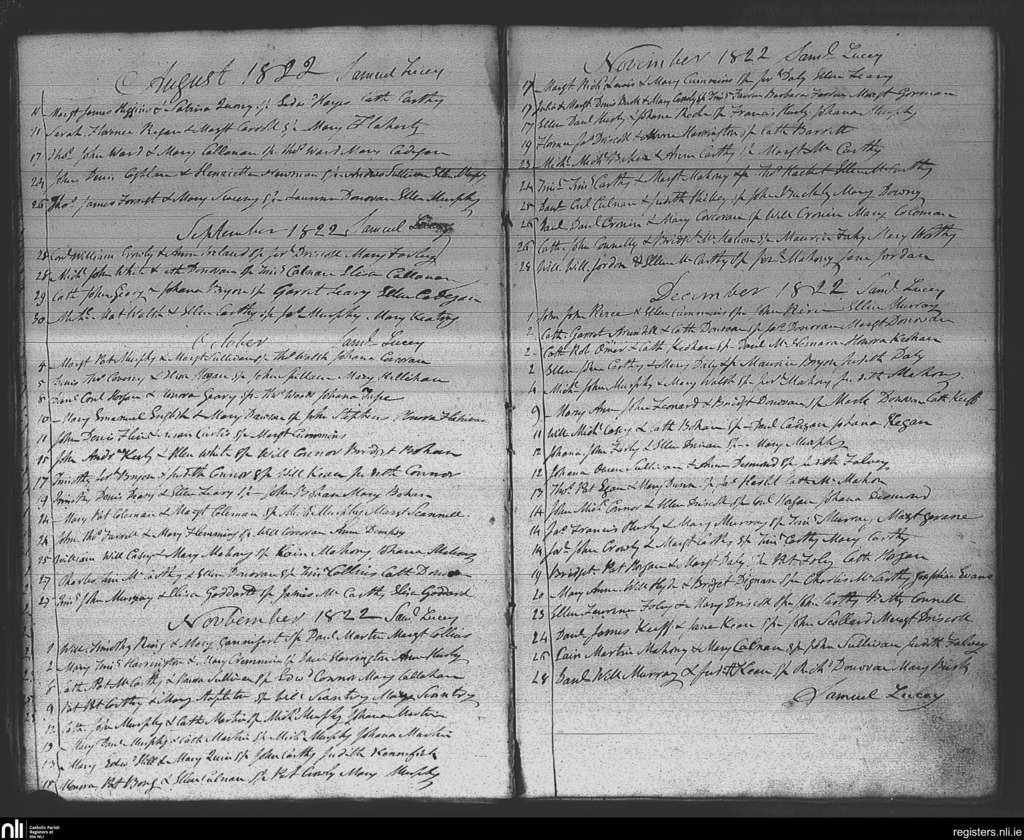 August 1822 Samuel Lucey
11 Margt James Higgins & Catrina Quony sp Edwd Hayes Cath Carthy
11 Sarah Florence Regan & Margt Carroll sp Mary Flaherty
17 Thos John Ward & Mary Callanan sp Thos Ward Mary Cadegan
24 John Coghlan & Henrietta Newman sp Sullivan Ellen Murphy
26 Thos James Forrest & Mary Sweeny sp Laurence Donovan Ellen Murphy
September 1822 Samuel Lucey
28 William Crowly & Ireland sp Driscoll Mary Farley
28 Michl John White & Cath Donovan sp Timy Calnan Eliza Callanan
29 Cath John Geary & Johana Bryan sp Garret Leary Ellen Cadegan
30 Mat Walsh & Ellen Carthy sp Jas Murphy Mary Keating
October Saml Lucey
4 Margt Patk Murphy & Margt Sullivan sp Thos Walsh Johana Corcoran
5 Thos Conway & Regan sp John Mary Kellihan
8 Conl Horgan & Honora Geary sp Thos Johana
10 Mary Emanuel English & Mary Dawson sp John Stephens
11 John Denis Curtis sp Margt Cummins
15 John Andw Kerly & Ellen White sp Will Connor Bridget Bohan
17 Timothy Bryan & Judith Connor sp Will Kean Judith Connor
19 Denis Leary & Ellen Leary sp John Bohan Mary Bohan
14 Mary Pat Coleman & Margt Coleman sp Murphy Margt Scannell
24 John Thos Farrell & Mary Flemming sp Will Donovan Anne Dempsy
25 William Will Casey & Mary Mahony sp Kain Mahony Johana Mahony
27 Charles Tim McCarthy & Ellen Donovan sp Timy Collins Cath Donovan
29 John Murray & Eliza Goddard sp James McCarthy Eliza Goddard
November 1822 Saml Lucey
1 Will Timothy Ring & Mary Cannifert sp Danl Martin Margt Collins
2 Mary Timy Harrington & Mary Crimmin sp Danl Harrington Ann Hurly
6 Cath Pat McCarthy & Sullivan sp Edwd Connor Mary Callahan
9 Pat Pat Carthy & Mary Stapleton sp Scantry Mary Scantry
12 Cath John Murphy & Cath Martin sp Michl Murphy Johana Martin
13 Mary Danl Murphy & Cath Martin sp Michl Murphy Johana Martin
13 Mary Edwd Hill & Mary Quin sp John Carthy Judith Hannifert
17 Honora Pat Bong & Ellen Calnan sp Pat Crowly Mary Murphy
November 1822 Saml Lucey
17 Margt Michl Lewis & Mary Cummins sp Jas Daly Ellen Leary
17 Julia & Margt Denis Buck & Mary Cowly sp Timy Barbara Margt Gorman
17 Ellen Danl Hurly & Johana Roche sp Francis Hurly Johana Murphy
19 Florence Jas Driscoll & Anne Harrington sp Cath Barrett
23 Michl Michl & Ann Carthy sp Margt McCarthy
24 Timy Timy Carthy & Margt Mahony sp Thos Hackett Ellen McCarthy
25 Danl Calnan & Judith Shihey sp John Buckly Mary Downy
26 Danl Danl Cronin & Mary Corcoran sp Will Cronin Mary Coleman
26 Cath John Connelly & Bridgt McMahon sp Maurice Fahy Mary Worthy
28 Will Will Jordan & Ellen McCarthy sp Jas Mahony Jane Jordan
December 1822 Saml Lucey
1 John John Pierce & Ellen Cummins sp John Pierce Ellen Murray
2 Cath Garrot Arundell & Cath Donovan sp Jas Donovan Margt Donovan
2 Cath Rob Omer & Cath Keohan sp Danl McNamara Honora Keohan
2 Ellen John Carthy & Mary Daly sp Maurice Bryan Judith Daly
4 Michl John Murphy & Mary Walsh sp Jas Mahony Judith Mahony
9 Mary Ann John Leonard & Bridgt Donovan sp Donovan Cath Keeff
11 Will Michl Casey & Cath Bohan sp Paul Cadegan Johana Regan
12 Johana John Farly & Ellen Drinan sp Mary Murphy
12 Johana Owen Sullivan & Ann Desmond sp Judith Falvey
13 Thos Pat Egan & Mary Dunn sp Jas Cath McMahon
14 John Michl Connor & Ellen Driscoll sp Hogan Johana Desmond
14 Jas Francis Hurly & Mary Murray sp Timy Murray Margt Gerane
14 Jas John Crowly & Margt Carthy sp Timy Carthy Mary Carthy
19 Bridget Pat Hogan & Margt Daly sp Pat Foley Cath Hogan
20 Mary Anne Will Hyde & Bridget Dignan sp Charles McCarthy Josephine Evans
23 Ellen Laurence Foley & Mary Driscoll sp John Carthy Kitty Connell
24 Danl James Keeff & Jane Kean sp John Scollard Margt Driscoll
26 Kain Martin Mahony & Mary Calnan sp John Sullivan Judith Falvey
28 Danl Will Murray & Judith Kean sp Richd Donovan Mary Hurly
Samuel Lucey
nli Catholic Parish
Registers at
the NLI
registers.nli.ie